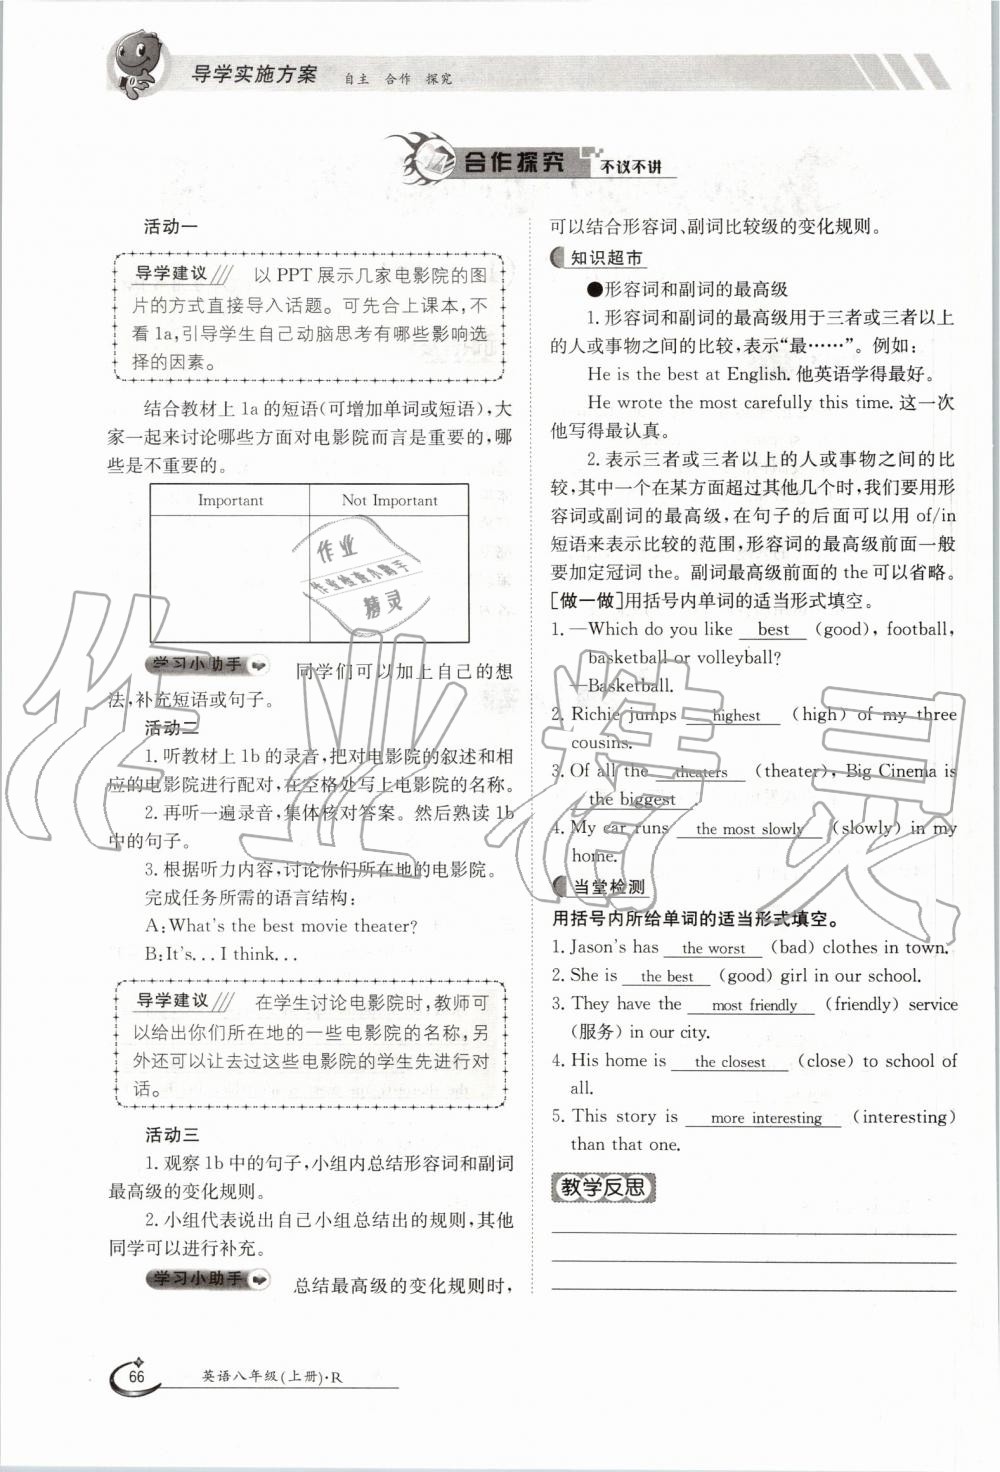 导学实施方案 自主 合作 探究
合作探究 不议不讲
活动一
导学建议 以 PPT 展示几家电影院的图
片的方式直接导入话题。可先合上课本,不
看 1a,引导学生自己动脑思考有哪些影响选
择的因素。
结合教材上 1a 的短语(可增加单词或短语),大
家一起来讨论哪些方面对电影院而言是重要的,哪
些是不重要的。
Important Not Important
学习小助手 同学们可以加上自己的想
法,补充短语或句子。
活动二
1. 听教材上 1b 的录音,把对电影院的叙述和相
应的电影院进行配对,在空格处写上电影院的名称。
2. 再听一遍录音,集体核对答案。然后熟读 1b
中的句子。
3. 根据听力内容,讨论你们所在地的电影院。
完成任务所需的语言结构:
A:What's the best movie theater?
B:It's...I think...
导学建议 在学生讨论电影院时,教师可
以给出你们所在地的一些电影院的名称,另
外还可以让去过这些电影院的学生先进行对
话。
活动三
1. 观察 1b 中的句子,小组内总结形容词和副词
最高级的变化规则。
2. 小组代表说出自己小组总结出的规则,其他
同学可以进行补充。
学习小助手 总结最高级的变化规则时,
可以结合形容词、副词比较级的变化规则。
知识超市
●形容词和副词的最高级
1. 形容词和副词的最高级用于三者或三者以上
的人或事物之间的比较,表示“最……”。例如:
He is the best at English. 他英语学得最好。
He wrote the most carefully this time. 这一次
他写得最认真。
2. 表示三者或三者以上的人或事物之间的比
较,其中一个在某方面超过其他几个时,我们要用形
容词或副词的最高级,在句子的后面可以用 of/in
短语来表示比较的范围,形容词的最高级前面一般
要加定冠词 the。副词最高级前面的 the 可以省略。
[做一做]用括号内单词的适当形式填空。
1. —Which do you like best (good), football,
basketball or volleyball?
—Basketball.
2. Richie jumps highest (high) of my three
cousins.
3. Of all the theaters (theater), Big Cinema is
the biggest .
4. My car runs the most slowly (slowly) in my
home.
当堂检测
用括号内所给单词的适当形式填空。
1. Jason's has the worst (bad) clothes in town.
2. She is the best (good) girl in our school.
3. They have the most friendly (friendly) service
(服务) in our city.
4. His home is the closest (close) to school of
all.
5. This story is more interesting (interesting)
than that one.
教学反思
66 英语八年级(上册)·R
作业
作业检查小助手
精灵
作业精灵